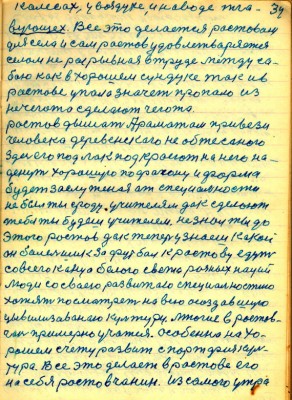 колесах, у воздухе и на воде тяга- 34
вующех. Все это делается ростовам
для села и сам ростов удовлетваряется
селом не разрывная в труде между са-
бою как в хорошем сундуке так и в
ростове упало значет пропало из
нечего то сделают чегота.
ростов дышат Араматам привези
человека деревенскаго не обтесаного
здес его подлак подкрасют на него на-
денут хорошую подгонону и дворма
будет заслуженая от специальности
не бали ты сроду учителям дак сделают
тебя ты будеш учителем. не знал ты до
этого ростов дак тепер узнаеш Какой
он балельщик За футбал К ростову едут
со всего Канца белого света розных наций
люди со своего развитого специальностю
хотят посматрет на всю создавшую
цивилизованаю Культуру. многие в ростов-
чан примерно учатся. особенно на хо-
рошем счету развит спорт дряя Кул-
тура. Все это делает в ростове его
на себя ростовчанин. из самого утра